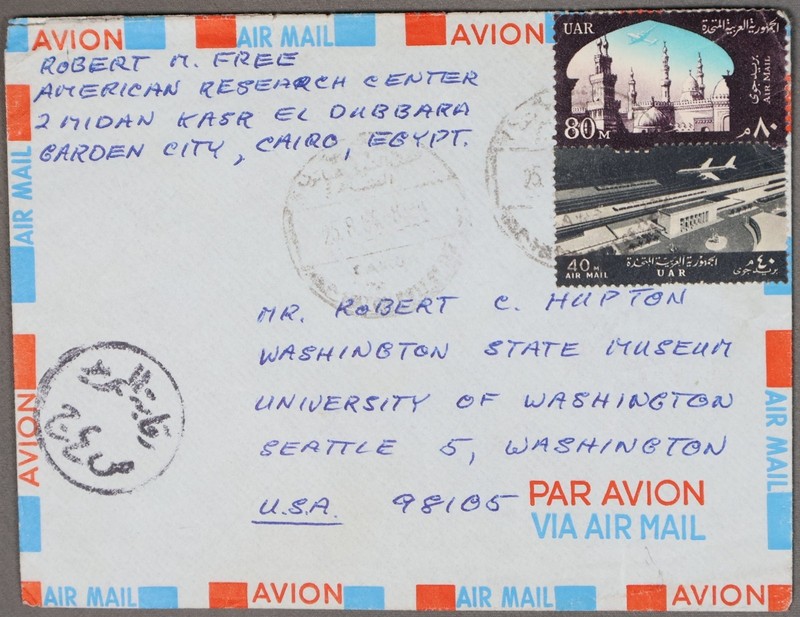 AVION AIR MAIL AVION
ROBERT M. FREE
AMERICAN RESEARCH CENTER
2 MIDAN KASR EL DUBBARA
GARDEN CITY, CAIRO, EGYPT.
UAR الجمهورية العربية المتحدة
بريد جوى
AIR MAIL
80 M ٨٠ م
40 M. الجمهورية العربية المتحدة ٤٠ م
AIR MAIL UAR بريد جوى
MR. ROBERT C. HUPTON
WASHINGTON STATE MUSEUM
UNIVERSITY OF WASHINGTON
SEATTLE 5, WASHINGTON
U.S.A. 98105
PAR AVION
VIA AIR MAIL
AIR MAIL
AVION
AIR MAIL
AIR MAIL AVION AIR MAIL AVION